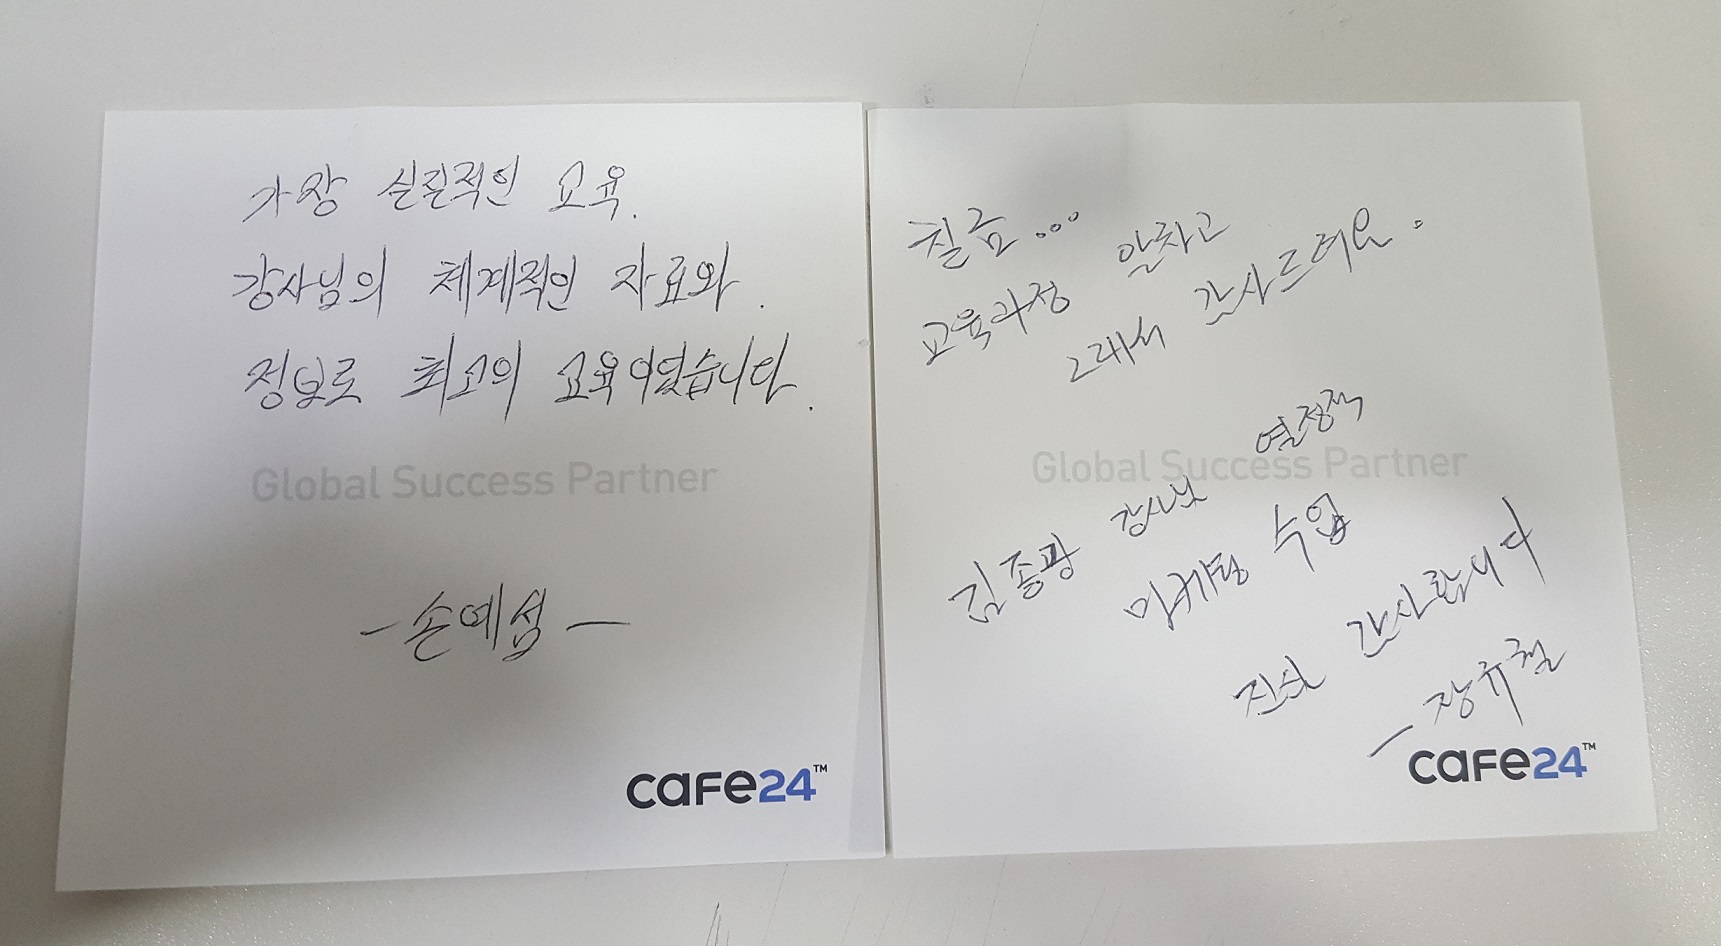 가장 실질적인 교육.
강사님의 체계적인 자료와.
정보로 최고의 교육이였습니다.
Global Success Partner
-손예섭-
cafe24™
교육과정 알차고
그래서 감사드려요.
열정적
Global Success Partner
김종광 강사님
마케팅 수업
진심 감사합니다
-장규철
cafe24™